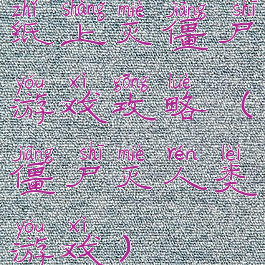 zhǐ shàng miè jiāng shī
纸上灭僵尸
yóu xì gōng lüè
游戏攻略（
jiāng shī miè rén lèi
僵尸灭人类
yóu xì
游戏）